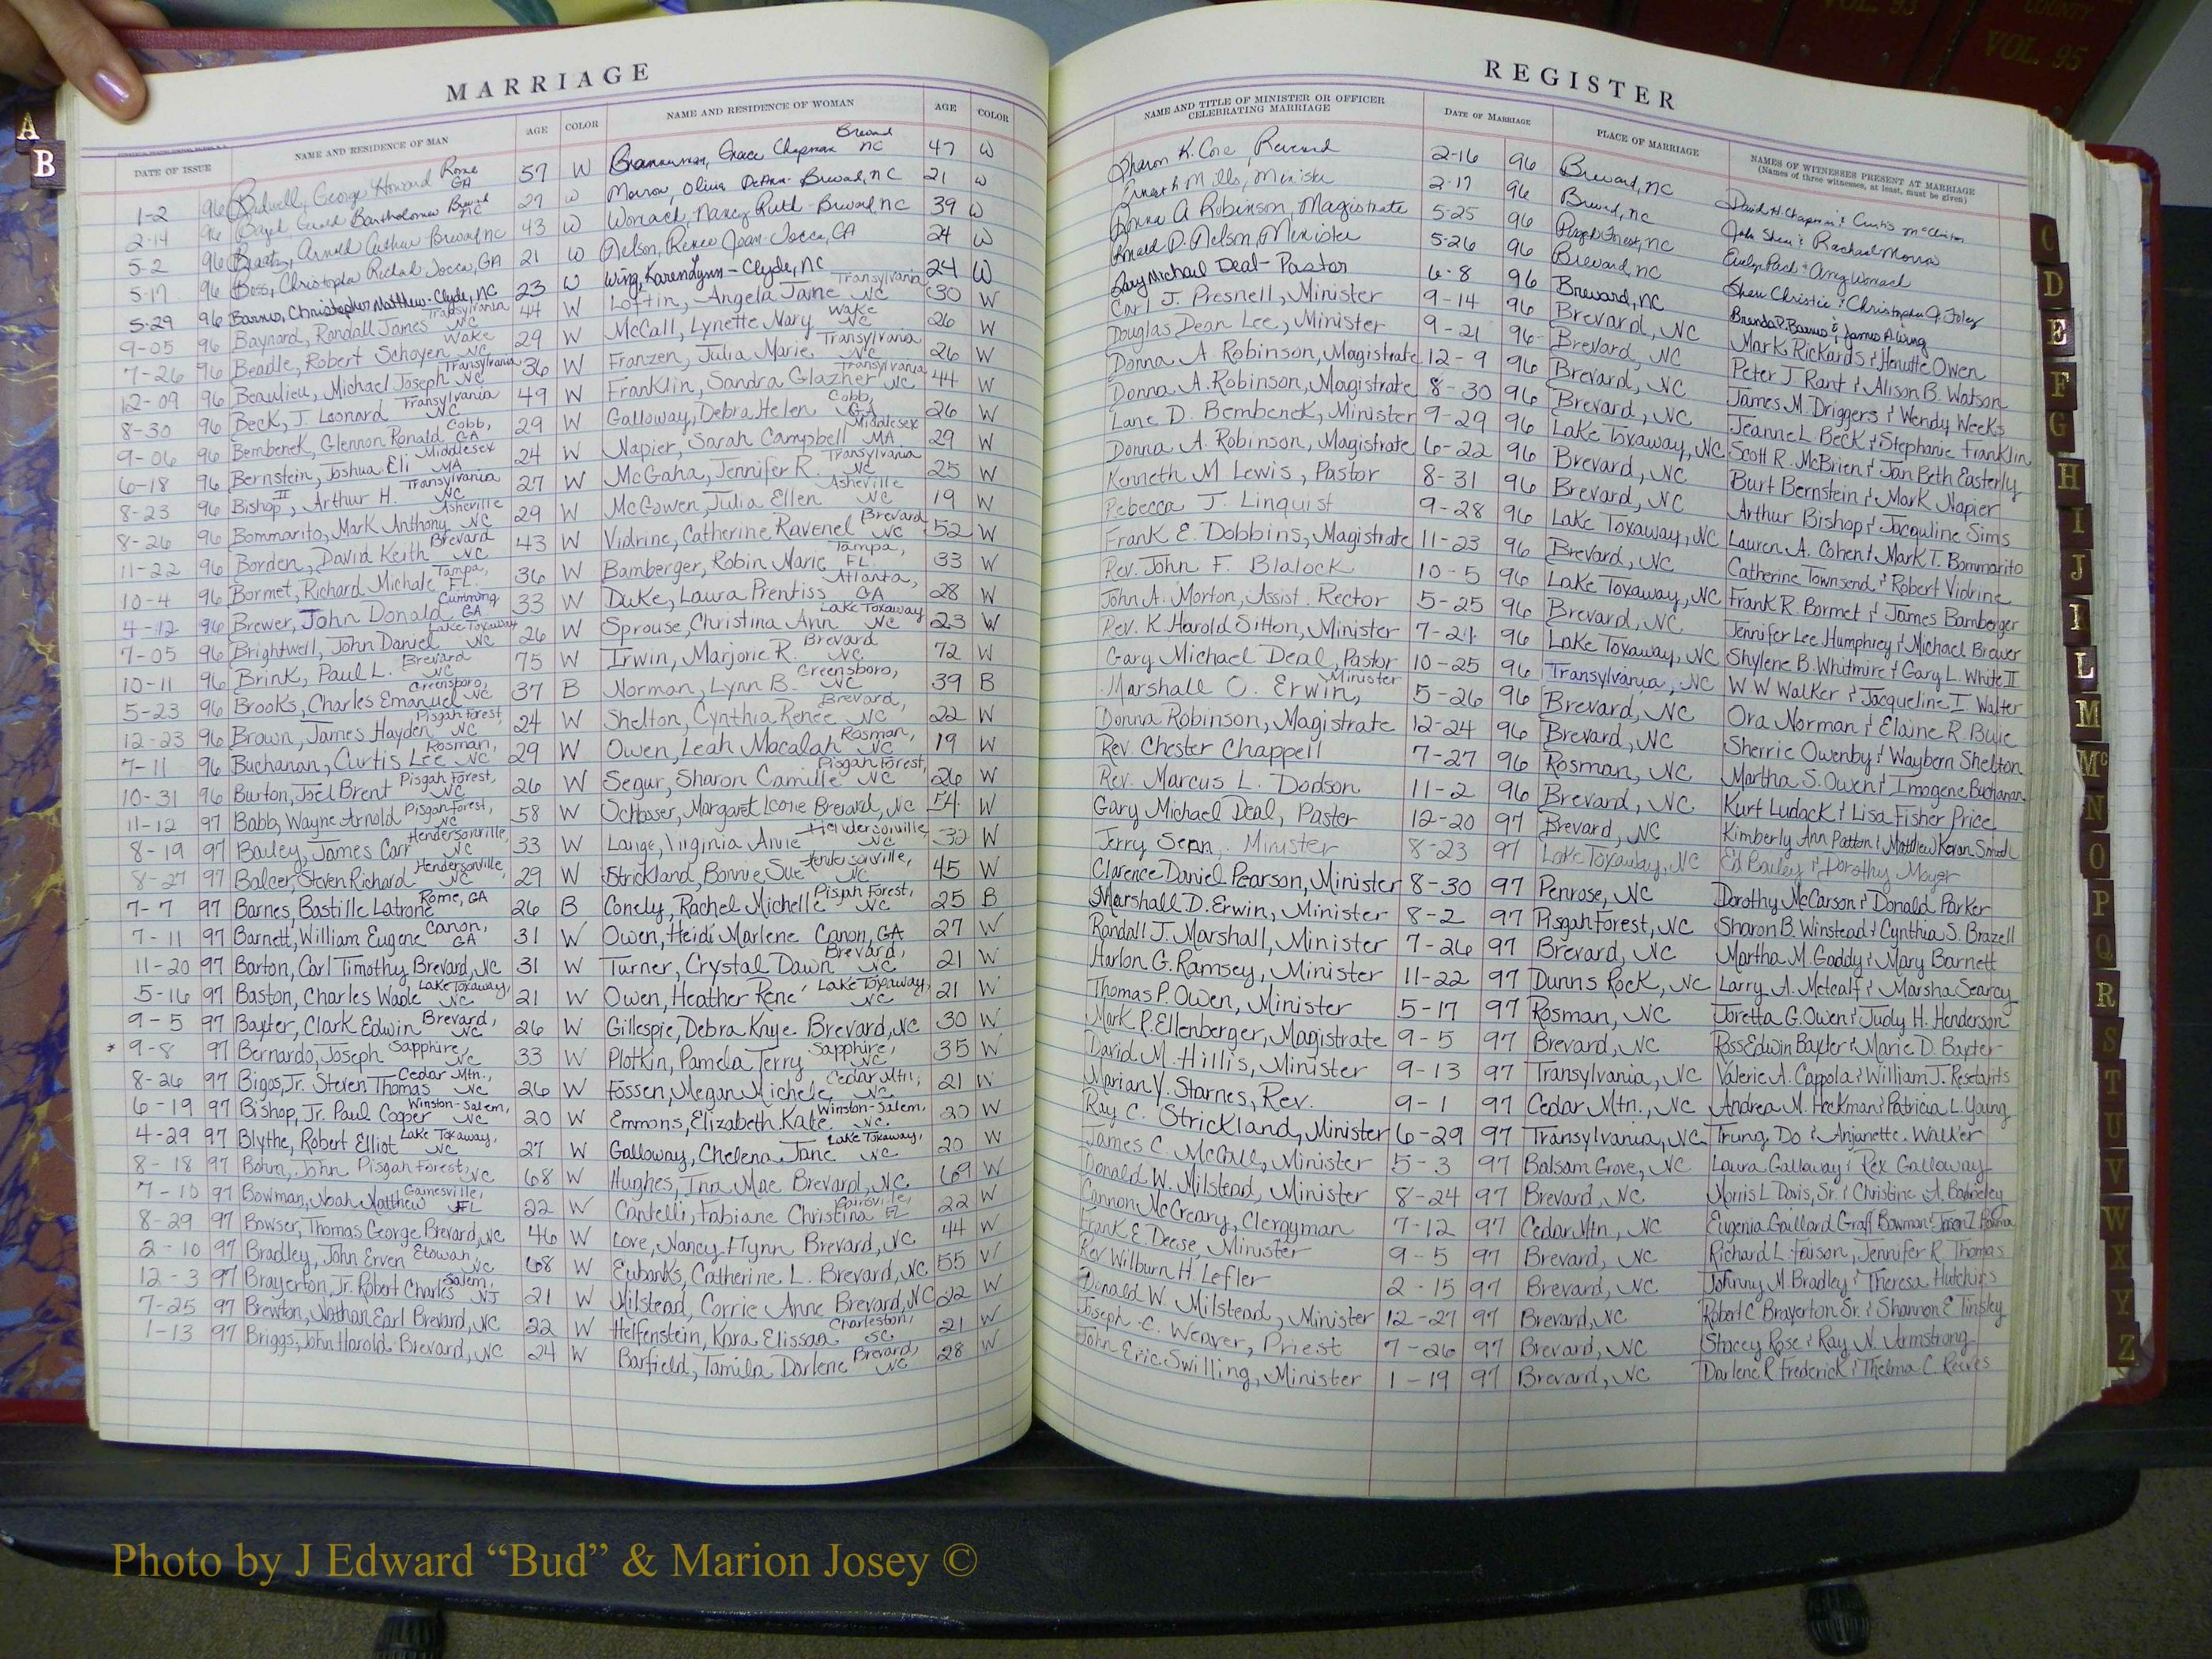 MARRIAGE
DATE OF ISSUE NAME AND RESIDENCE OF MAN AGE COLOR NAME AND RESIDENCE OF WOMAN AGE COLOR
1-2 96 George Howard Rome GA 57 W Grace Chapman Brevard NC 47 W
2-14 96 Bartholomew Brevard NC 27 W Morrow, Olivia DeAnn - Brevard, NC 21 W
5-2 96 Arnold Arthur Brevard, NC 43 W Womack, Nancy Ruth - Brevard, NC 39 W
5-17 96 Boss, Christopher Richard Tocca, GA 21 W Nelson, Renee Joan - Tocca, GA 24 W
5-29 96 Barnes, Christopher Matthew - Clyde, NC 23 W Wing, Karen Lynn - Clyde, NC 24 W
9-05 96 Baynard, Randall James Transylvania NC 44 W Loftin, Angela Jane Transylvania NC 30 W
7-26 96 Beadle, Robert Schoyen Wake NC 29 W McCall, Lynette Mary Wake NC 26 W
12-09 96 Beaulieu, Michael Joseph Transylvania NC 36 W Franzen, Julia Marie Transylvania NC 26 W
8-30 96 Beck, J. Leonard Transylvania NC 49 W Franklin, Sandra Glazner Transylvania NC 44 W
9-06 96 Bembenek, Glennon Ronald Cobb, GA 29 W Galloway, Debra Helen Cobb, GA 26 W
6-18 96 Bernstein, Joshua Eli Middlesex MA 24 W Napier, Sarah Campbell Middlesex MA 29 W
8-23 96 Bishop II, Arthur H. Transylvania NC 27 W McGaha, Jennifer R. Transylvania NC 25 W
8-26 96 Bommarito, Mark Anthony Asheville NC 29 W McGowen, Julia Ellen Asheville NC 19 W
11-22 96 Borden, David Keith Brevard NC 43 W Vidrine, Catherine Ravenel Brevard 52 W
10-4 96 Bormet, Richard Michale Tampa, FL. 36 W Bamberger, Robin Marie Tampa, FL. 33 W
4-12 96 Brewer, John Donald Cumming GA 33 W Duke, Laura Prentiss Atlanta, GA 28 W
7-05 96 Brightwell, John Daniel Lake Toxaway NC 26 W Sprouse, Christina Ann Lake Toxaway NC 23 W
10-11 96 Brink, Paul L. Brevard NC 75 W Irwin, Marjorie R. Brevard NC 72 W
5-23 96 Brooks, Charles Emanuel Greensboro, NC 37 B Norman, Lynn B. Greensboro, NC 39 B
12-23 96 Brown, James Hayden Pisgah Forest, NC 24 W Shelton, Cynthia Renee Brevard, NC 22 W
7-11 96 Buchanan, Curtis Lee Rosman, NC 29 W Owen, Leah Macalah Rosman, NC 19 W
10-31 96 Burton, Joel Brent Pisgah Forest, NC 26 W Segur, Sharon Camille Pisgah Forest, NC 26 W
11-12 97 Babb, Wayne Arnold Pisgah Forest, NC 58 W Margaret Brevard, NC 54 W
8-19 97 Bailey, James Carr Hendersonville, NC 33 W Lange, Virginia Anne Hendersonville NC 32 W
8-27 97 Balcer, Steven Richard Hendersonville, NC 29 W Strickland, Bonnie Sue Hendersonville, NC 45 W
7-7 97 Barnes, Bastille Latrone Rome, GA 26 B Conely, Rachel Michelle Pisgah Forest, NC 25 B
7-11 97 Barnett, William Eugene Canon, GA 31 W Owen, Heidi Marlene Canon, GA 27 W
11-20 97 Barton, Carl Timothy Brevard, NC 31 W Turner, Crystal Dawn Brevard, NC 21 W
5-16 97 Baston, Charles Wade Lake Toxaway, NC 21 W Owen, Heather Rene' Lake Toxaway, NC 21 W
9-5 97 Baxter, Clark Edwin Brevard, NC 26 W Gillespie, Debra Kaye Brevard, NC 30 W
* 9-8 97 Bernardo, Joseph Sapphire, NC 33 W Plotkin, Pamela Terry Sapphire, NC 35 W
8-26 97 Bigos, Jr. Steven Thomas Cedar Mtn., NC 26 W Fossen, Megan Michele Cedar Mtn, NC 21 W
6-19 97 Bishop, Jr. Paul Cooper Winston-Salem, NC 20 W Emmons, Elizabeth Kate Winston-Salem, NC. 20 W
4-29 97 Blythe, Robert Elliot Lake Toxaway, NC 27 W Galloway, Chelena Jane Lake Toxaway, NC 20 W
8-18 97 John Pisgah Forest, NC 68 W Hughes, Ina Mae Brevard, NC 69 W
7-10 97 Bowman, Noah Matthew Gainesville, FL 22 W Cantelli, Fabiane Christina FL 22 W
8-29 97 Bowser, Thomas George Brevard, NC 46 W Love, Nancy Flynn Brevard, NC 44 W
2-10 97 Bradley, John Erven Etowah, NC 68 W Eubanks, Catherine L. Brevard, NC 55 W
12-3 97 Braverton, Jr. Robert Charles Salem, NJ 21 W Milstead, Corrie Anne Brevard, NC 22 W
7-25 97 Brewton, Nathan Earl Brevard, NC 22 W Helfenstein, Kara Elissa Charleston, SC 21 W
1-13 97 Briggs, John Harold - Brevard, NC 24 W Barfield, Tamila Darlene Brevard, NC 28 W
REGISTER
NAME AND TITLE OF MINISTER OR OFFICER CELEBRATING MARRIAGE DATE OF MARRIAGE PLACE OF MARRIAGE NAMES OF WITNESSES PRESENT AT MARRIAGE
(Names of three witnesses, at least, must be given)
Sharon K. Reverend 2-16 96 Brevard, NC David H. Chapman & Curtis McClinton
Mills, Minister 2-17 96 Brevard, NC & Rachael Morrow
Donna A Robinson, Magistrate 5-25 96 Pisgah Forest, NC & Amy Womack
Ronald D. Nelson, Minister 5-26 96 Brevard, NC Christie & Christopher J. Foley
Gary Michael Deal - Pastor 6-8 96 Brevard, NC Brenda P. Barnes & James A. Wing
Carl J. Presnell, Minister 9-14 96 Brevard, NC Mark Rickards & Owen
Douglas Dean Lee, Minister 9-21 96 Brevard, NC Peter J. Rant & Alison B. Watson
Donna A. Robinson, Magistrate 12-9 96 Brevard, NC James M. Driggers & Wendy Weeks
Donna A. Robinson, Magistrate 8-30 96 Brevard, NC Jeanne L. Beck & Stephanie Franklin
Lane D. Bembenek, Minister 9-29 96 Lake Toxaway, NC Scott R. McBrien & Jan Beth Easterly
Donna A. Robinson, Magistrate 6-22 96 Brevard, NC Burt Bernstein & Mark Napier
Kenneth M Lewis, Pastor 8-31 96 Brevard, NC Arthur Bishop & Jacquline Sims
Rebecca J. Linquist 9-28 96 Lake Toxaway, NC Lauren A. Cohen & Mark T. Bommarito
Frank E. Dobbins, Magistrate 11-23 96 Brevard, NC Catherine Townsend & Robert Vidrine
Rev. John F. Blalock 10-5 96 Lake Toxaway, NC Frank R. Bormet & James Bamberger
John A. Morton, Assist. Rector 5-25 96 Brevard, NC Jennifer Lee Humphrey & Michael Brewer
Rev. K. Harold Sitton, Minister 7-21 96 Lake Toxaway, NC Shylene B. Whitmire & Gary L. White II
Gary Michael Deal, Pastor 10-25 96 Transylvania, NC W W Walker & Jacqueline I Walter
Marshall O. Erwin, Minister 5-26 96 Brevard, NC Ora Norman & Elaine R. Buie
Donna Robinson, Magistrate 12-24 96 Brevard, NC Sherrie Owenby & Waybern Shelton
Rev. Chester Chappell 7-27 96 Rosman, NC Martha S. Owen & Imogene Buchanan
Rev. Marcus L. Dodson 11-2 96 Brevard, NC Kurt Ludack & Lisa Fisher Price
Gary Michael Deal, Pastor 12-20 97 Brevard, NC Kimberly Ann Patton & Matthew
Jerry Minister 8-23 97 Lake Toxaway, NC Ed Bailey & Dorothy Moyer
Clarence Daniel Pearson, Minister 8-30 97 Penrose, NC Dorothy McCarson & Donald Parker
Marshall D. Erwin, Minister 8-2 97 Pisgah Forest, NC Sharon B. Winstead & Cynthia S. Brazell
Randall J. Marshall, Minister 7-26 97 Brevard, NC Martha M. Gaddy & Mary Barnett
Harlon G. Ramsey, Minister 11-22 97 Dunns Rock, NC Larry A. Metcalf & Marsha Searcy
Thomas P. Owen, Minister 5-17 97 Rosman, NC Joretta G. Owen & Judy H. Henderson
Mark P. Ellenberger, Magistrate 9-5 97 Brevard, NC Ross Edwin Baxter & Marie D. Baxter
David M. Hillis, Minister 9-13 97 Transylvania, NC Valerie A. Cappola & William J. Resetarits
Marian Y. Starnes, Rev. 9-1 97 Cedar Mtn., NC Andrea M. Heckman & Patricia L. Young
Ray C. Strickland, Minister 6-29 97 Transylvania, NC Trung Do & Anjanette Walker
James C. McCall, Minister 5-3 97 Balsam Grove, NC Laura Galloway & Rex Galloway
Donald W. Milstead, Minister 8-24 97 Brevard, NC Morris L Davis, Sr. & Christine A.
Cannon McCreary, Clergyman 7-12 97 Cedar Mtn, NC Eugenia Gaillard Graff Bowman & Jason
Frank E Deese, Minister 9-5 97 Brevard, NC Richard L. Faison, Jennifer R Thomas
Rev Wilburn H Lefler 2-15 97 Brevard, NC Johnny M. Bradley & Theresa Hutchins
Donald W. Milstead, Minister 12-27 97 Brevard, NC Robert C Braverton Sr. & Shannon E Tinsley
Joseph C. Weaver, Priest 7-26 97 Brevard, NC Stacey Rose & Ray N. Armstrong
John Eric Swilling, Minister 1-19 97 Brevard, NC Darlene R Frederick & Thelma C. Reeves
A
B
C
D
E
F
G
H
I
J
L
M
Mc
N
O
P
Q
R
S
T
U
V
W
X
Y
Z
VOL. 93
COUNTY
VOL. 95
Photo by J Edward “Bud” & Marion Josey ©